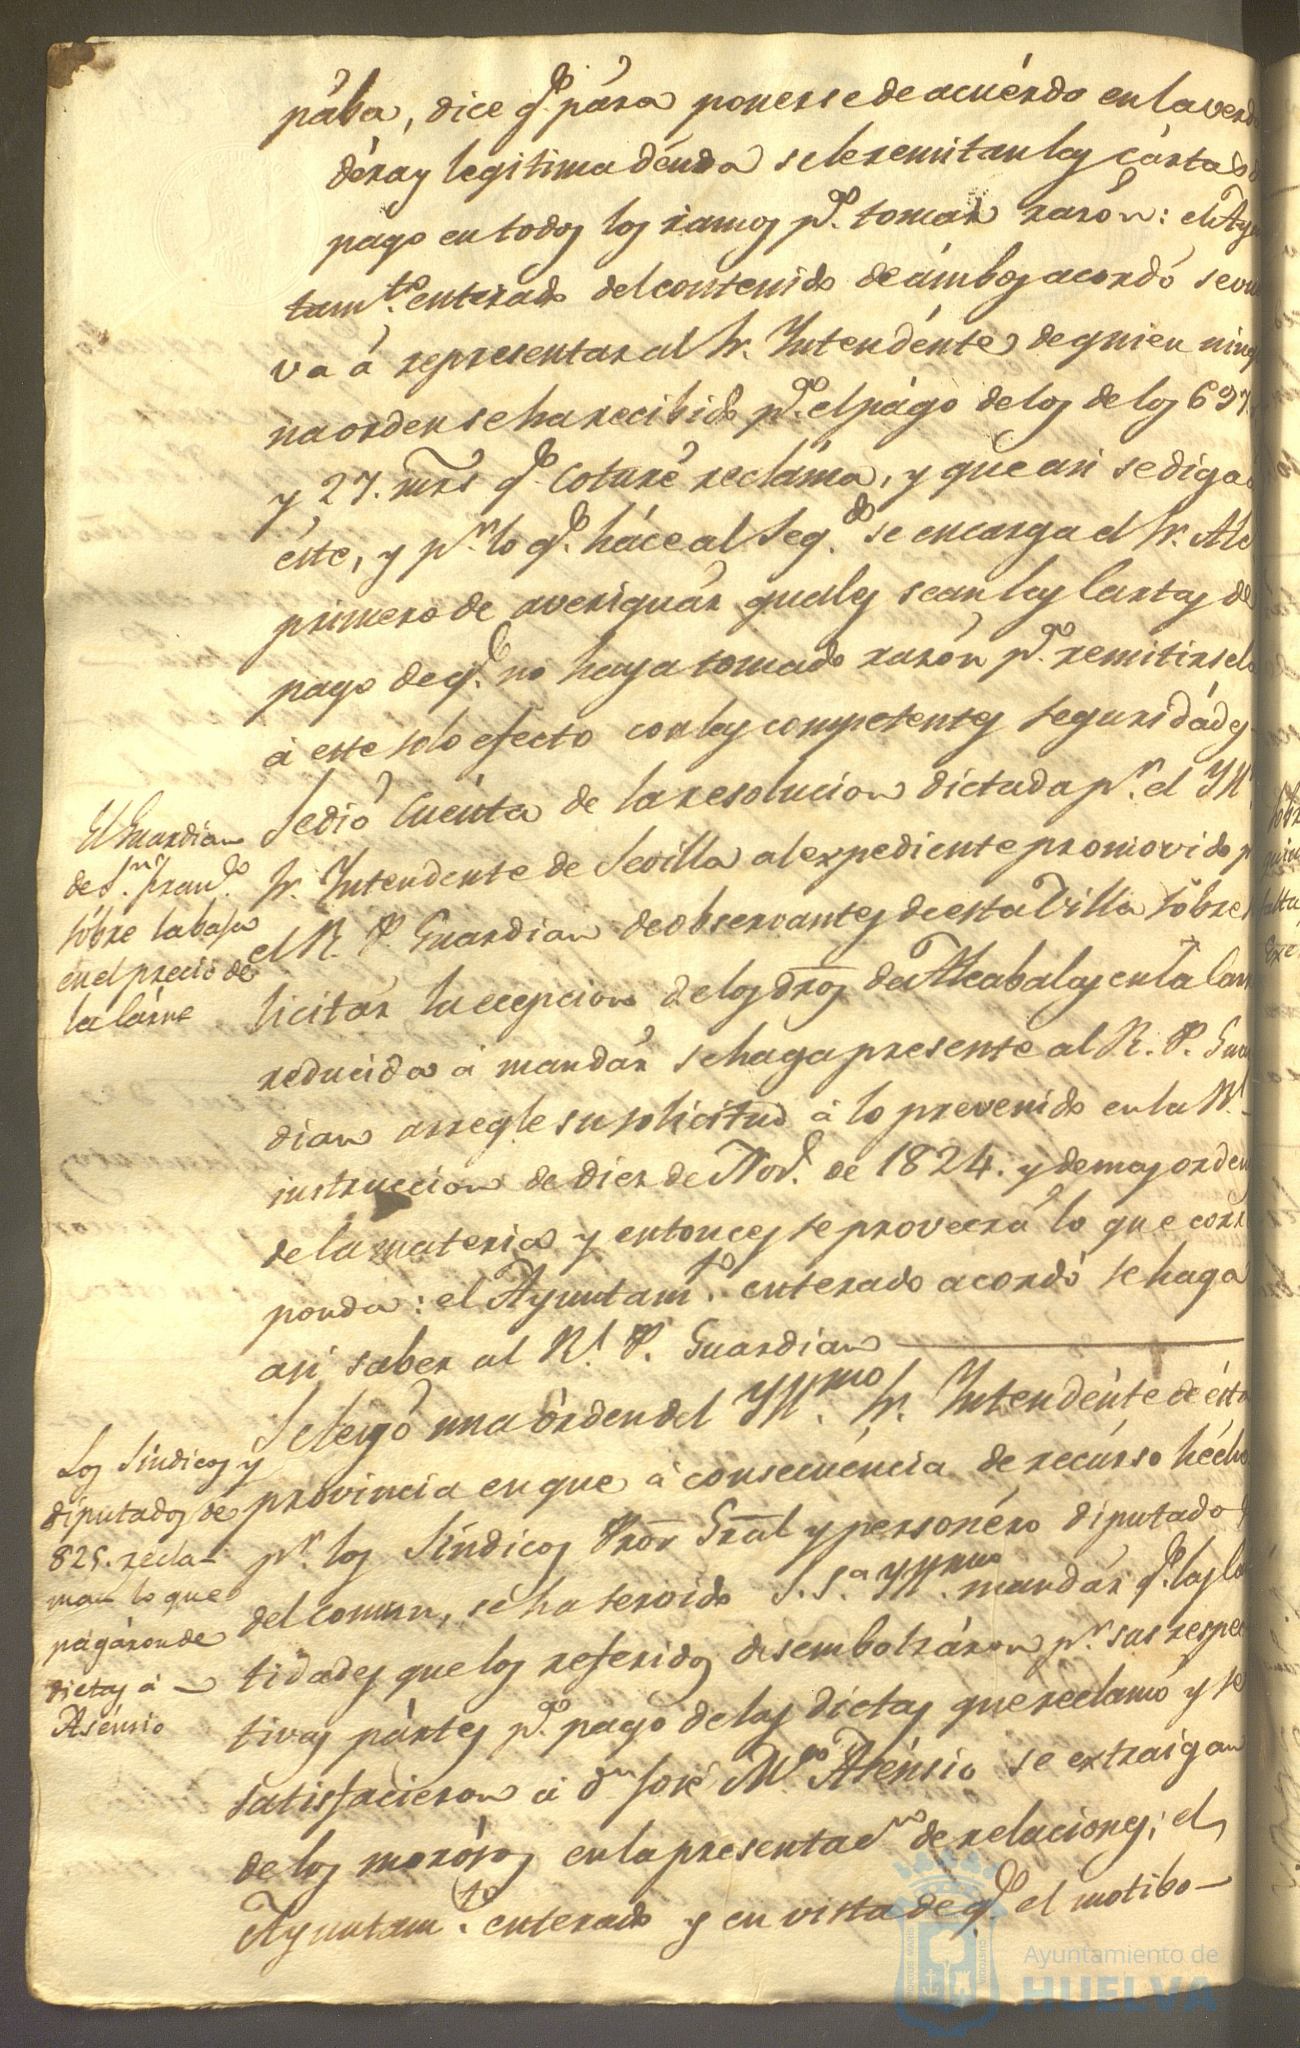 pába, dice q.e pára ponerse de acuérdo en la verda
déra y legitima déuda se le remitan las cártas d
pago en todos los ramos p.a tomar razón: el Ayun
tam.to enterado del contenido de ámbos acordó se vu
va á representar al Sr. Intendénte de quien ningu
na orden se ha recibido p.a el págo de los de los 697
y 27. mrs q.e Coturé recláma, y que asi se diga
éste, y p.r lo q.e háce al Seg.do se encarga el Sr. Alc
primero de averiguár quales sean las Cartas de
pago de q.e no haya tomado razón p.a remitirsela
á este solo efecto con las competentes seguridádes
El Guardian
de S.n Fran.co
sóbre la baja
en el precio de
la Cárne
Se dió Cuénta de la resolucion dictada p.r el Yll.
Sr. Intendente de Sevilla al expediente promovido p
el R. P. Guardian de observantes de esta Villa sóbre
licitár la ecepcion de los dros de Alcabalas en la Carn
reducida á mandár se haga presente al R. P. Guar
dian arregle su solicitud á lo prevenido en la Rl.
instruccion de diez de Nov.e de 1824. y demas orden
de la materia y entonces se proveerá lo que corr
ponda: el Ayuntam.to enterado acordó se haga
asi saber al R. P. Guardian
Los Síndicos y
diputados de
825. recla-
man lo que
pagáron de
dietas á
Asénsio
Se leyó una órden del Yll.mo Sr. Intendénte de ésta
provincia en que á consecuéncia de recúrso hécho
p.r los Síndicos Pror Gral y personéro diputado
del comun, se ha servido S. S.a Yll.ma mandár q.e las
tidades que los referidos desembolzáron p.r sus respec
tivas pártes p.a pago de las dietas que reclamó y se
satisfacieron á d.n José M.a Asénsio se extraigan
de los morósos en la presentac.n de relaciones; el
Ayuntam.to enterado y en vista de q.e el motibo
Ayuntamiento de
HUELVA